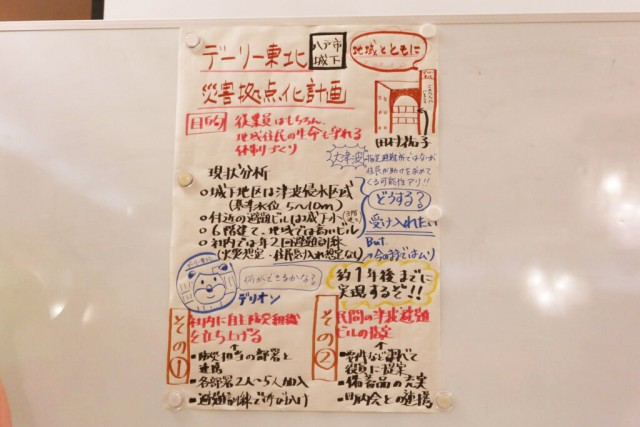 デーリー東北
八戸市
城下
地域とともに
災害拠点化計画
田村祐子
目的
従業員はもちろん、
地域住民の生命も守れる
体制づくり
現状分析
○城下地区は津波浸水区域
(基準水位 5〜10m)
○付近の避難ビルは城下小
○6階建て、地域では高いビル
○社内では年2回避難訓練
(火災想定・住民受け入れ想定なし)
大津波
指定避難所ではないが
住民が助けを求めて
くる可能性アリ!!
どうする?
受け入れたい
But
今のままではムリ
デーリー東北
何ができるかな?
デリオン
約1年後までに
実現するぞ!!
その①
社内に自主防災組織
を立ち上げる
・防災担当の部署と
連携
・各部署2人〜5人加入
・避難訓練で呼び入り
その②
民間の津波避難
ビルの指定
・要件など調べて
役員に提案
・備蓄品の充実
・町内会との連携